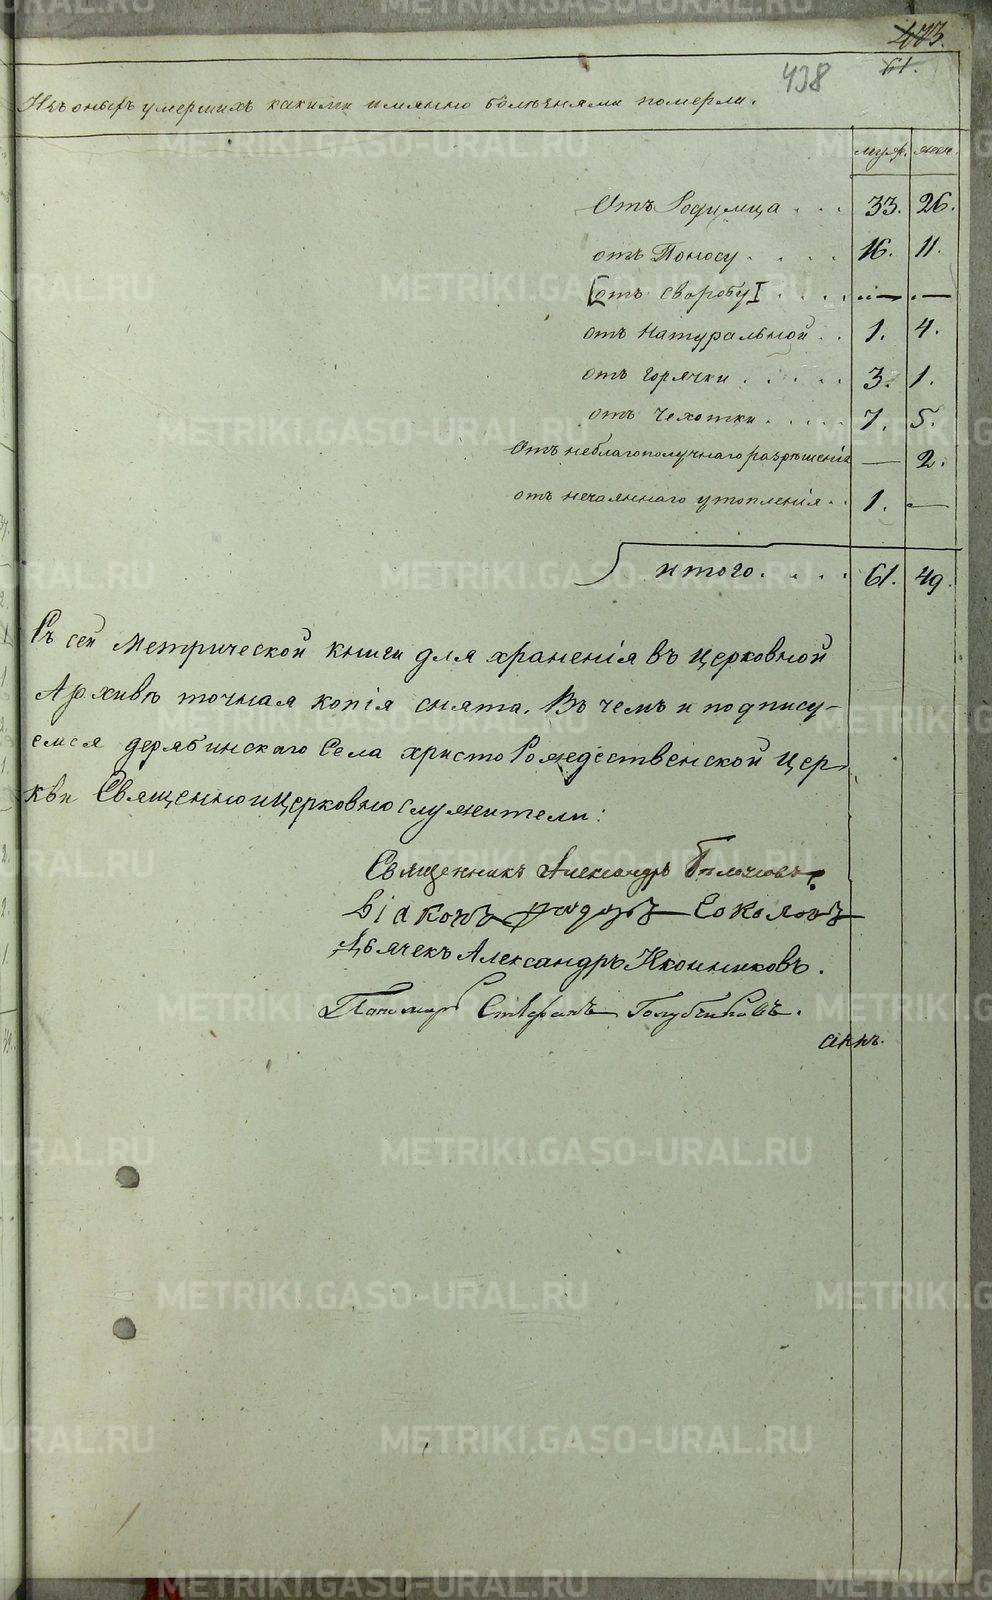 473.
61.
438
Изъ оныхъ умершихъ какими имянно болезнями померли.
муж. жен.
Отъ Родимца . . . 33. 26.
отъ Поносу . . . . 16. 11.
[отъ своробу] . . . . — —
отъ Натуральной . . 1. 4.
отъ горячки . . . . . 3. 1.
отъ Чехотки . . . . . 7. 5.
Отъ неблагополучнаго разрѣшенія — 2.
отъ нечаяннаго утопленія . . 1. —
итого . . . . 61. 49.
Съ сей Метрической книги для храненія въ Церковной
Архивѣ точная копія снята. Въ чемъ и подпису-
емся дерябинскаго Села христо Рождественской Цер
кви Священноицерковнослужители:
Священникъ Александръ
Діаконъ Соколовъ
Дьячекъ Александръ Иконниковъ.
Пономарь Стефанъ Голубчиковъ.
METRIKI.GASO-URAL.RU